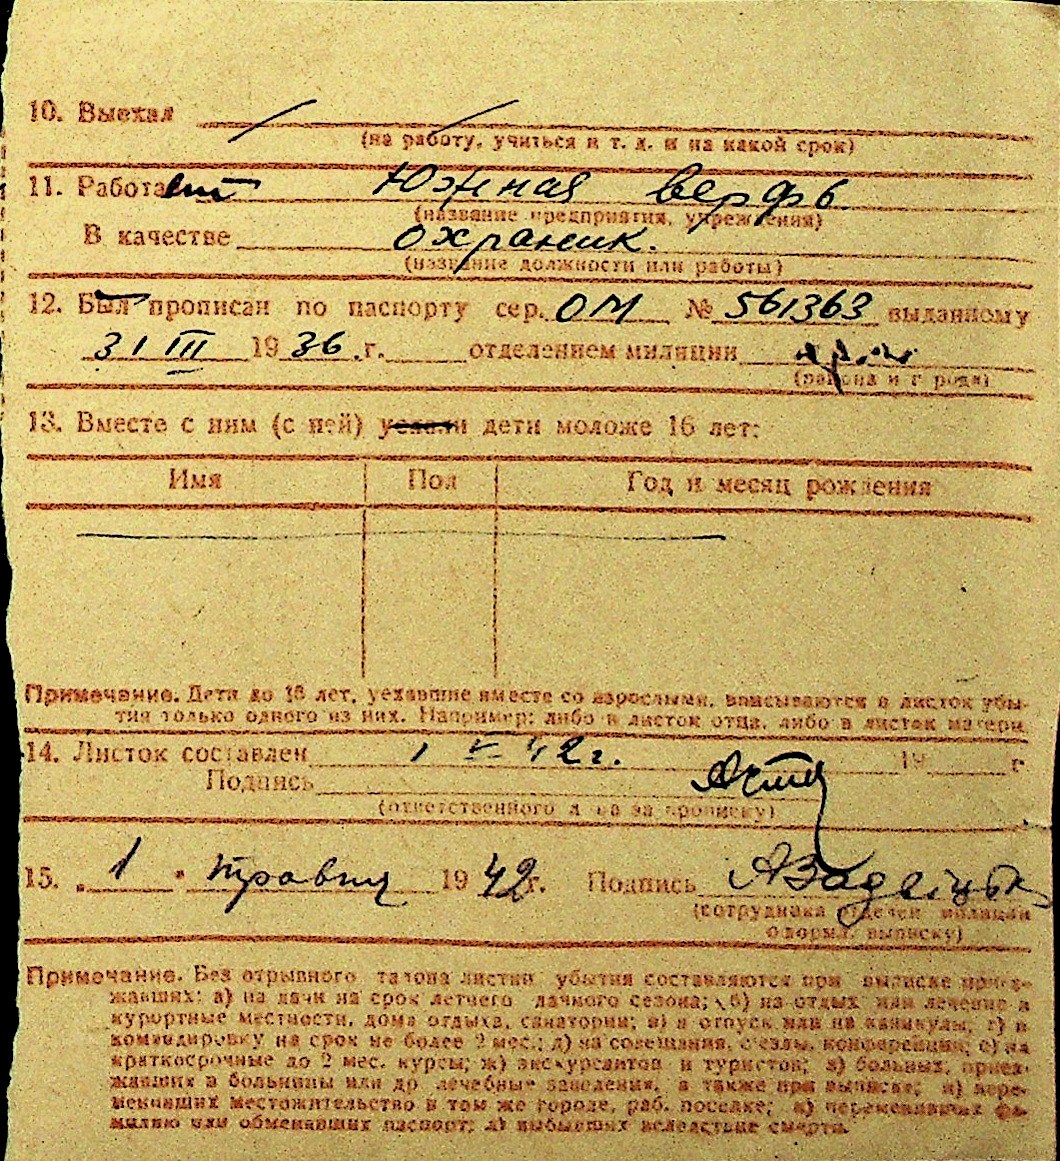 10. Выехал
(на работу, учиться и т. д. и на какой срок)
11. Работает Южная верфь
(название предприятия, учреждения)
В качестве охраник.
(название должности или работы)
12. Был прописан по паспорту сер. ОМ № 561363 выданному
31 III 1936 г. отделением милиции
(района и города)
13. Вместе с ним (с ней) уехали дети моложе 16 лет:
Имя Пол Год и месяц рождения
Примечание. Дети до 16 лет, уехавшие вместе со взрослыми, вписываются в листок убы-
тия только одного из них. Например: либо в листок отца, либо в листок матери
14. Листок составлен 1 V 42 г. 19 г
Подпись
(ответственного л ца за прописку)
15. „1" травня 1942 г. Подпись
(сотрудника отделен милиции
оформл. выписку)
Примечание. Без отрывного талона листки убытия составляются при выписке приез-
жавших: а) на дачи на срок летнего дачного сезона; б) на отдых или лечение в
курортные местности, дома отдыха, санатории; в) в отпуск или на каникулы; г) в
командировку на срок не более 2 мес.; д) на совещания, съезды, конференции; е) на
краткосрочные до 2 мес. курсы; ж) экскурсантов и туристов; з) больных, приез-
жавших в больницы или др лечебные заведения, а также при выписке; и) пере-
менивших местожительство в том же городе, раб. поселке; к) переменивших фа-
милию или обменявших паспорт; л) выбывших вследствие смерти.